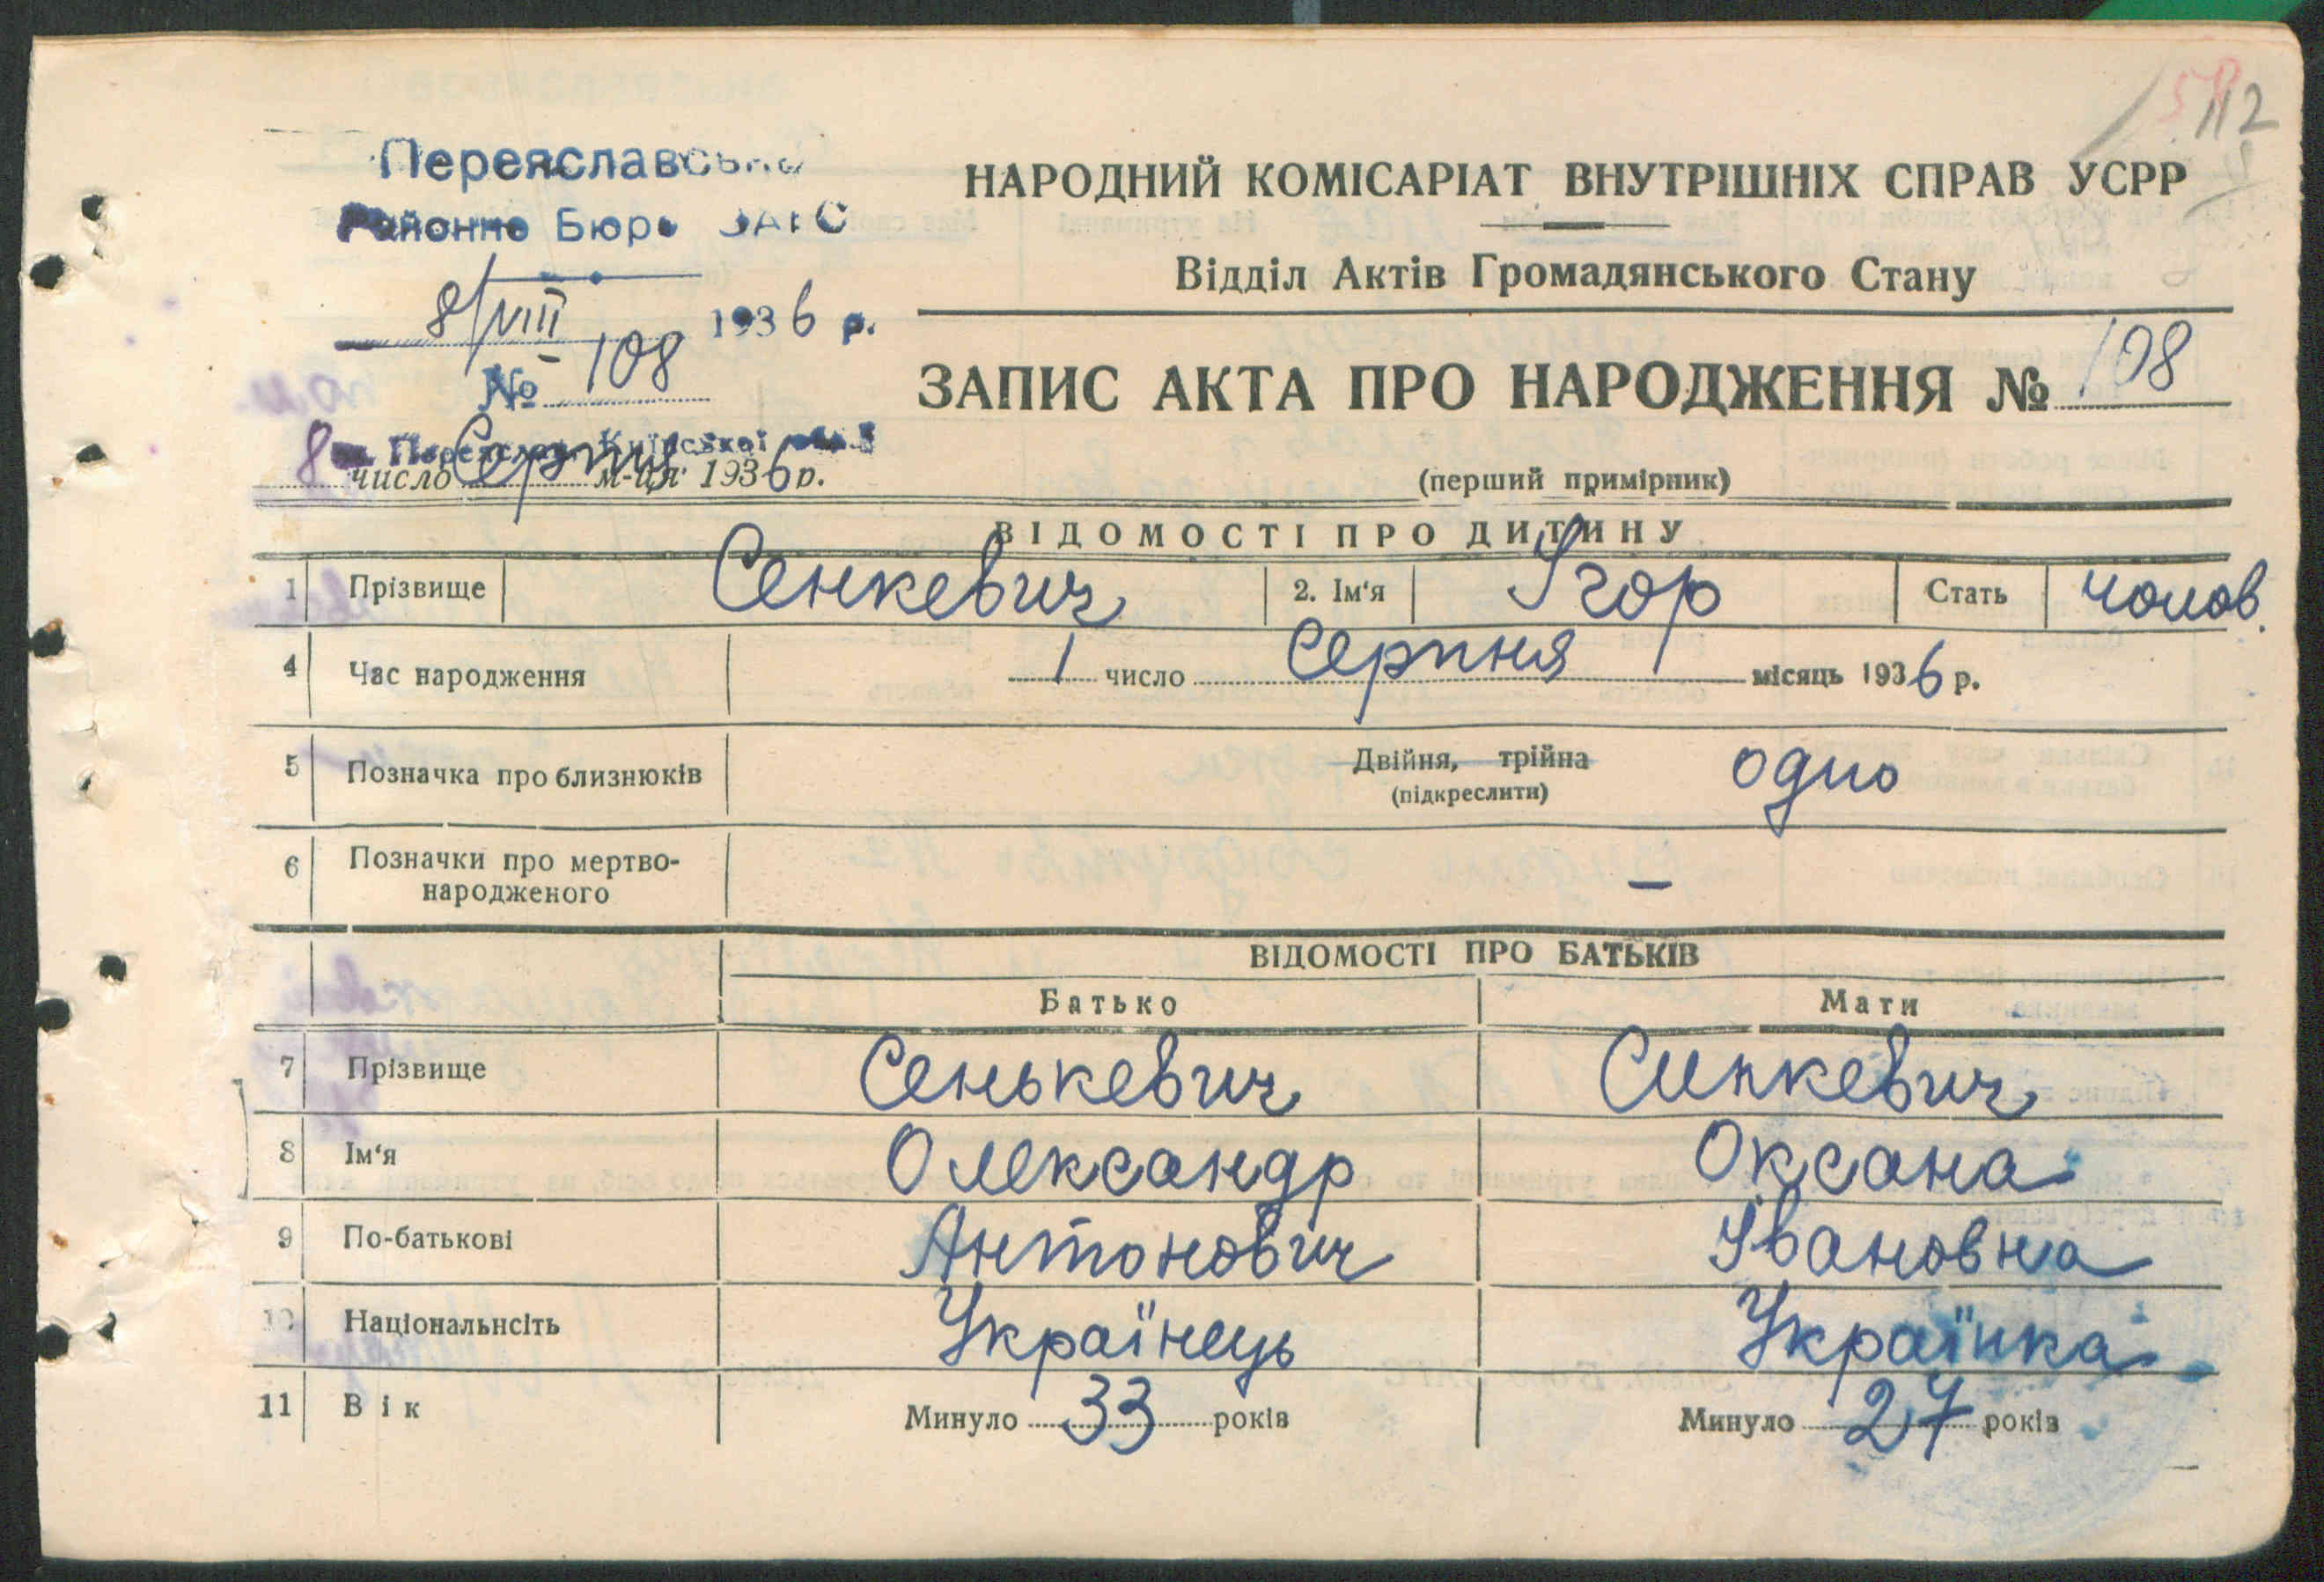 112
Переяславське
Районне Бюро ЗАГС
8/VIII 1936 р.
№ 108
м. Переяслав, Київської обл.
8 число Серпня м-ця 1936 р.
НАРОДНИЙ КОМІСАРІАТ ВНУТРІШНІХ СПРАВ УСРР
Відділ Актів Громадянського Стану
ЗАПИС АКТА ПРО НАРОДЖЕННЯ № 108
(перший примірник)
ВІДОМОСТІ ПРО ДИТИНУ
1 Прізвище Сенкевич 2. Ім'я Ігор Стать чолов.
4 Час народження 1 число Серпня місяць 1936 р.
5 Позначка про близнюків Двійня, трійна одно
(підкреслити)
6 Позначки про мертво-
народженого —
ВІДОМОСТІ ПРО БАТЬКІВ
Батько Мати
7 Прізвище Сенькевич Синкевич
8 Ім'я Олександр Оксана
9 По-батькові Антонович Івановна
10 Національнсіть Українець Українка
11 Вік Минуло 33 років Минуло 27 років